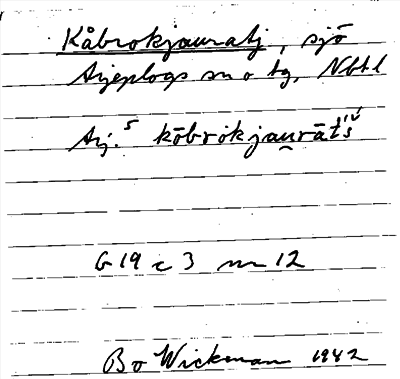 Kåbrokjauratj, sjö
Arjeplogs sn o tg, Nbtl
Arj. s kōbrōkjau̯rāt́śⁱᵛ
G 19 c 3 nr 12
Bo Wickman 1942